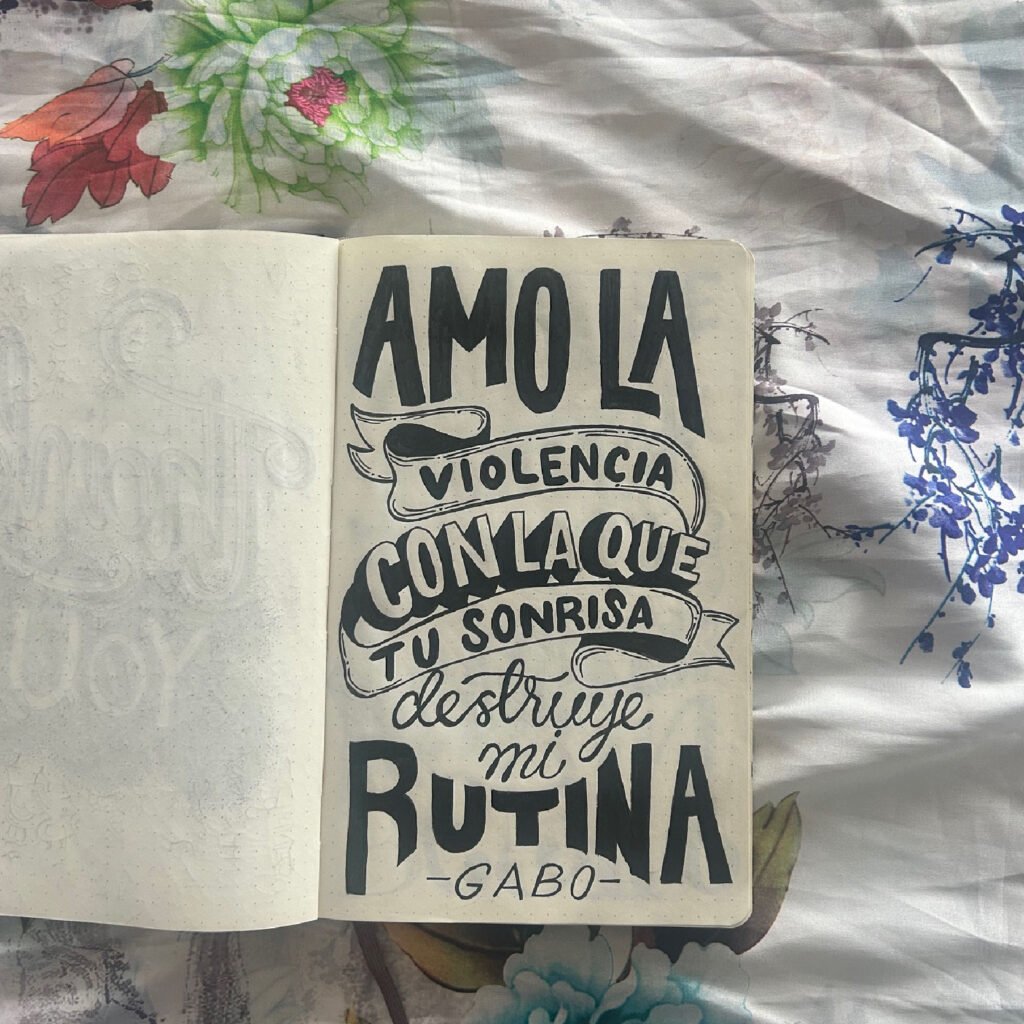 AMO LA
VIOLENCIA
CON LA QUE
TU SONRISA
destruye
mi
RUTINA
-GABO-